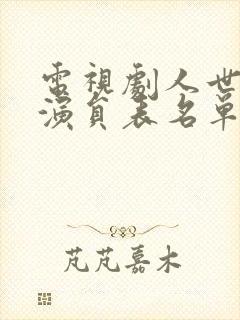 電視劇人世
演員表名單
芃芃嘉木